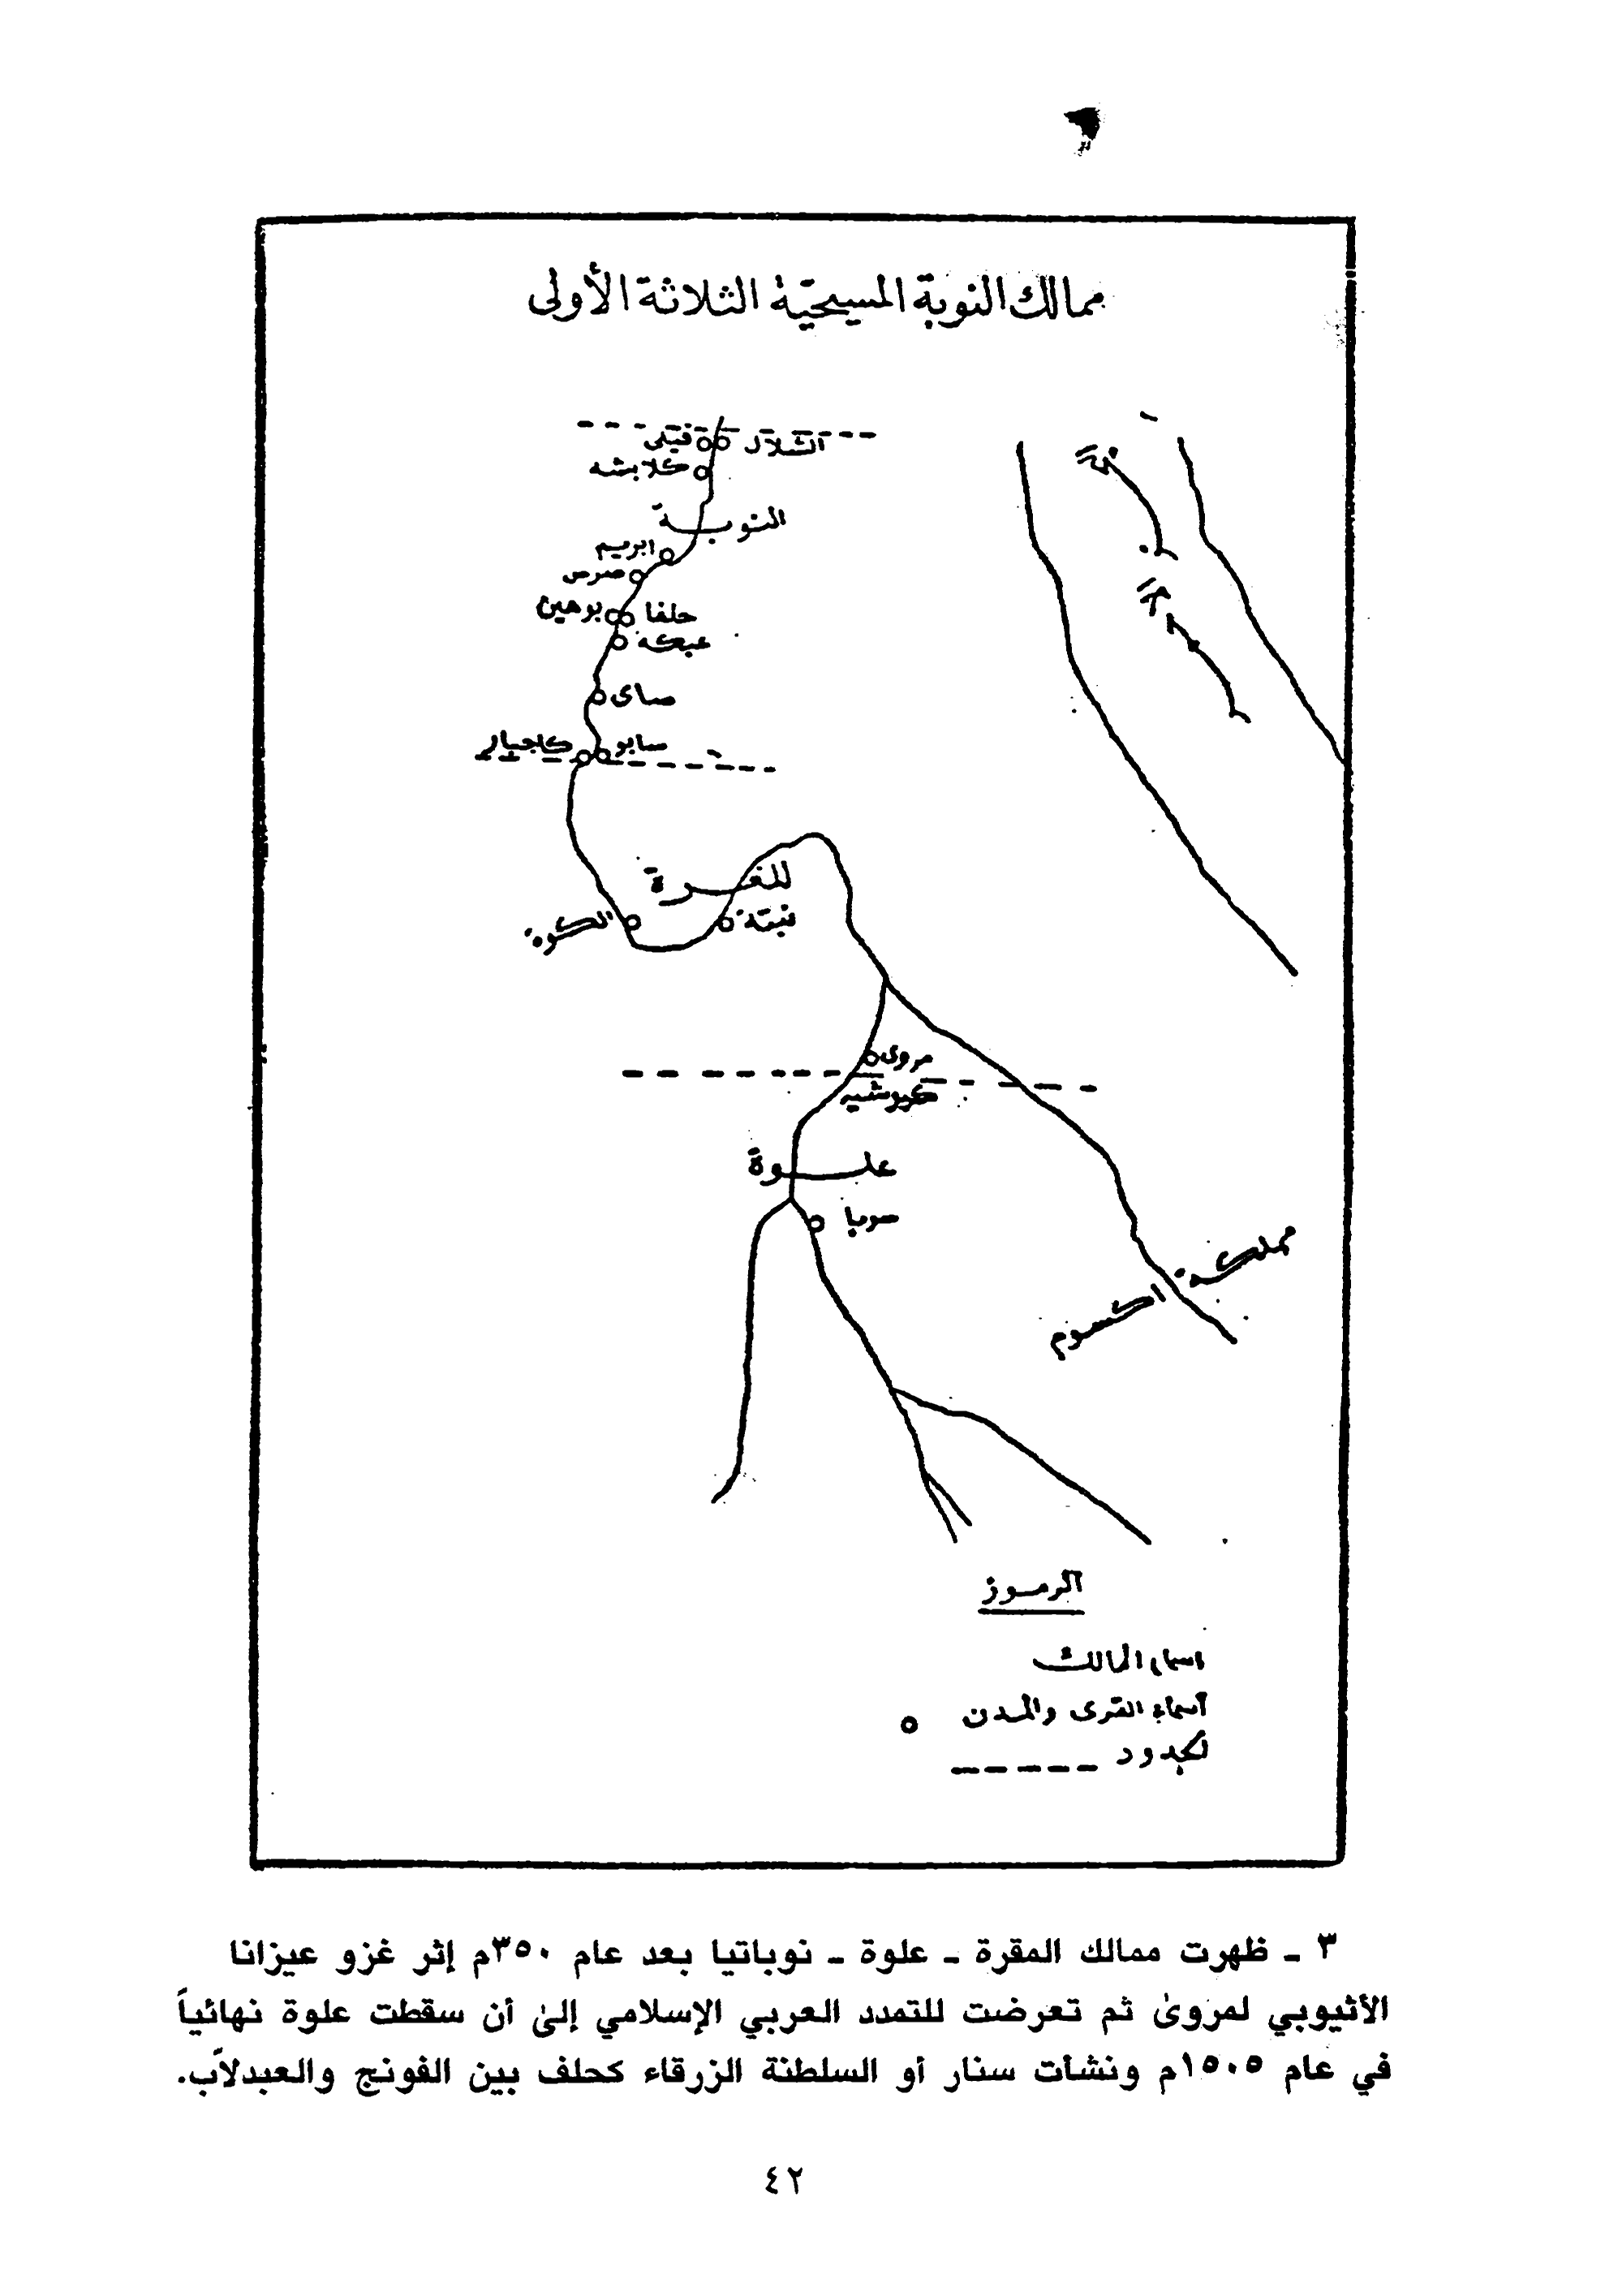 ممالك النوبة المسيحيّة الثلاثة الأولى
الشلال
فيلى
كلابشه
النوبــة
ابريم
صرص
حلفا
بوهين
عبكة
صاى
سابو
كاجبار
المقــرة
نبتة
الكوة
مروى
كبوشيه
علــوة
سوبا
مملكة
اكسوم
البحر
الأحمر
الرمـوز
اسماء الممالك
أسماء القرى والمدن
الحدود
٣ ـ ظهرت ممالك المقرة ـ علوة ـ نوباتيا بعد عام ٣٥٠م إثر غزو عيزانا
الأثيوبي لمروىٰ ثم تعرضت للتمدد العربي الإسلامي إلىٰ أن سقطت علوة نهائياً
في عام ١٥٠٥م ونشأت سنار أو السلطنة الزرقاء كحلف بين الفونج والعبدلاّب.
٤٢